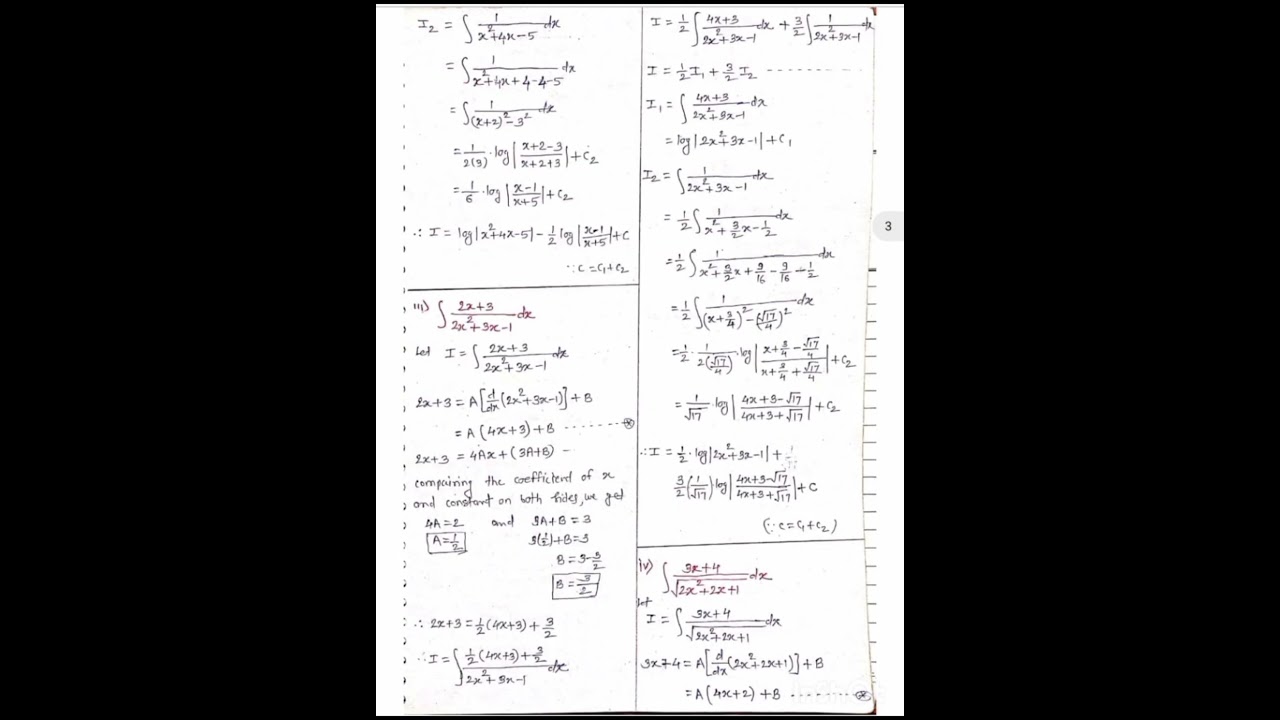 I₂ = ∫ 1/(x²+4x-5) dx
= ∫ 1/(x²+4x+4-4-5) dx
= ∫ 1/((x+2)²-3²) dx
= 1/2(3) · log|(x+2-3)/(x+2+3)| + C₂
= 1/6 · log|(x-1)/(x+5)| + C₂
∴ I = log|x²+4x-5| - 1/2 log|(x-1)/(x+5)| + C
∵ C = C₁+C₂
iii) ∫ (2x+3)/(2x²+3x-1) dx
Let I = ∫ (2x+3)/(2x²+3x-1) dx
2x+3 = A[d/dx(2x²+3x-1)] + B
= A(4x+3) + B -------⊛
2x+3 = 4Ax + (3A+B) -
comparing the coefficient of x
and constant on both sides, we get
4A=2 and 3A+B = 3
A=1/2 3(1/2)+B=3
B = 3-3/2
B = 3/2
∴ 2x+3 = 1/2(4x+3) + 3/2
∴ I = ∫ (1/2(4x+3)+3/2)/(2x²+3x-1) dx
I = 1/2 ∫ (4x+3)/(2x²+3x-1) dx + 3/2 ∫ 1/(2x²+3x-1) dx
I = 1/2 I₁ + 3/2 I₂ ----------
I₁ = ∫ (4x+3)/(2x²+3x-1) dx
= log|2x²+3x-1| + C₁
I₂ = ∫ 1/(2x²+3x-1) dx
= 1/2 ∫ 1/(x²+3/2x-1/2) dx
= 1/2 ∫ 1/(x²+3/2x+9/16-9/16-1/2) dx
= 1/2 ∫ 1/((x+3/4)²-(√17/4)²) dx
= 1/2 · 1/2(√17/4) · log|(x+3/4-√17/4)/(x+3/4+√17/4)| + C₂
= 1/√17 · log|(4x+3-√17)/(4x+3+√17)| + C₂
∴ I = 1/2 · log|2x²+3x-1| +
3/2(1/√17) log|(4x+3-√17)/(4x+3+√17)| + C
(∵ C = C₁+C₂)
iv) ∫ (3x+4)/√(2x²+2x+1) dx
let
I = ∫ (3x+4)/√(2x²+2x+1) dx
3x+4 = A[d/dx(2x²+2x+1)] + B
= A(4x+2) + B --------⊛
3